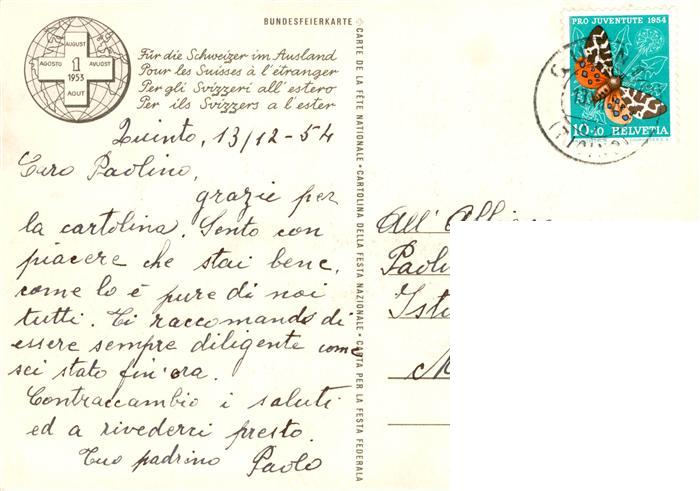 BUNDESFEIERKARTE
AUGUST
AGOSTO 1 AVUOST
1953
AOUT
Für die Schweizer im Ausland
Pour les Suisses à l'étranger
Per gli Svizzeri all'estero
Per ils Svizzers a l'ester
Quinto, 13/12-54
Caro Paolino,
grazie per
la cartolina. Sento con
piacere che stai bene,
come lo è pure di noi
tutti. Ti raccomando di
essere sempre diligente come
sei stato fin'ora.
Contraccambio i saluti
ed a rivederci presto.
Tuo padrino Paolo
CARTE DE LA FÊTE NATIONALE • CARTOLINA DELLA FESTA NAZIONALE • CARTA PER LA FESTA FEDERALA
PRO JUVENTUTE 1954
10+10 HELVETIA
(TICINO)
All'